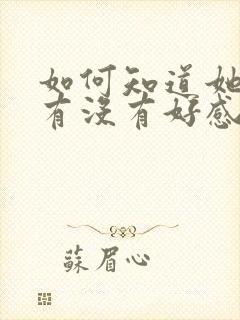 如何知道她
有没有好感
蘇眉心